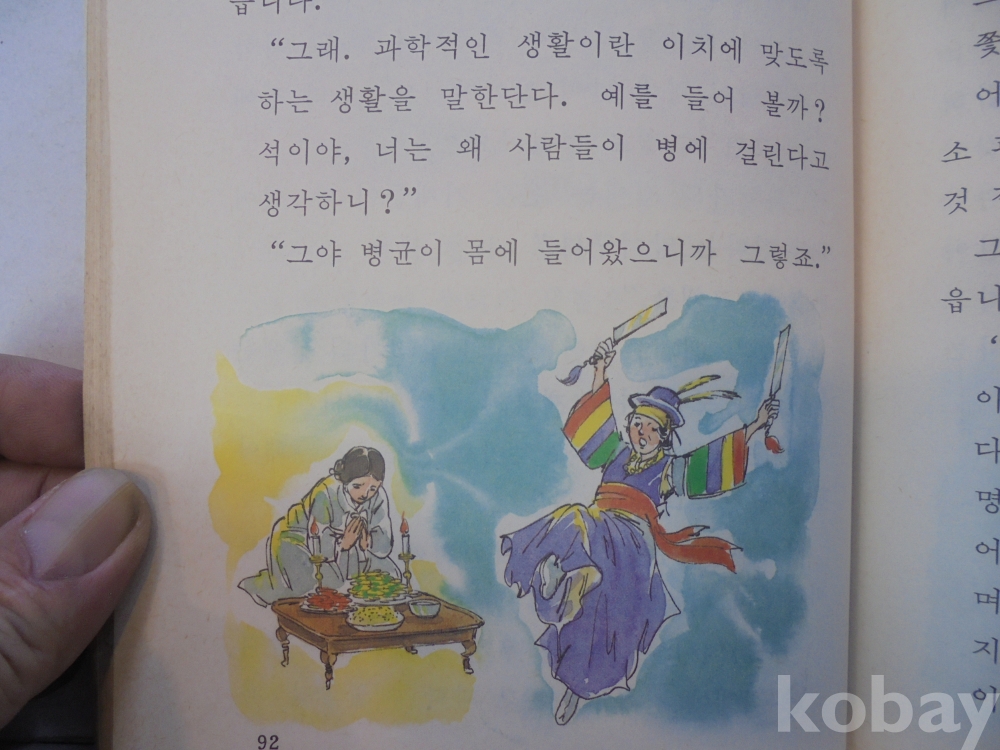 읍니다.
“그래. 과학적인 생활이란 이치에 맞도록
하는 생활을 말한단다. 예를 들어 볼까?
석이야, 너는 왜 사람들이 병에 걸린다고
생각하니?”
“그야 병균이 몸에 들어왔으니까 그렇죠.”
92
쫓
에
소
것
그
읍니
“
이
다
명
어
며
지
이
kobay